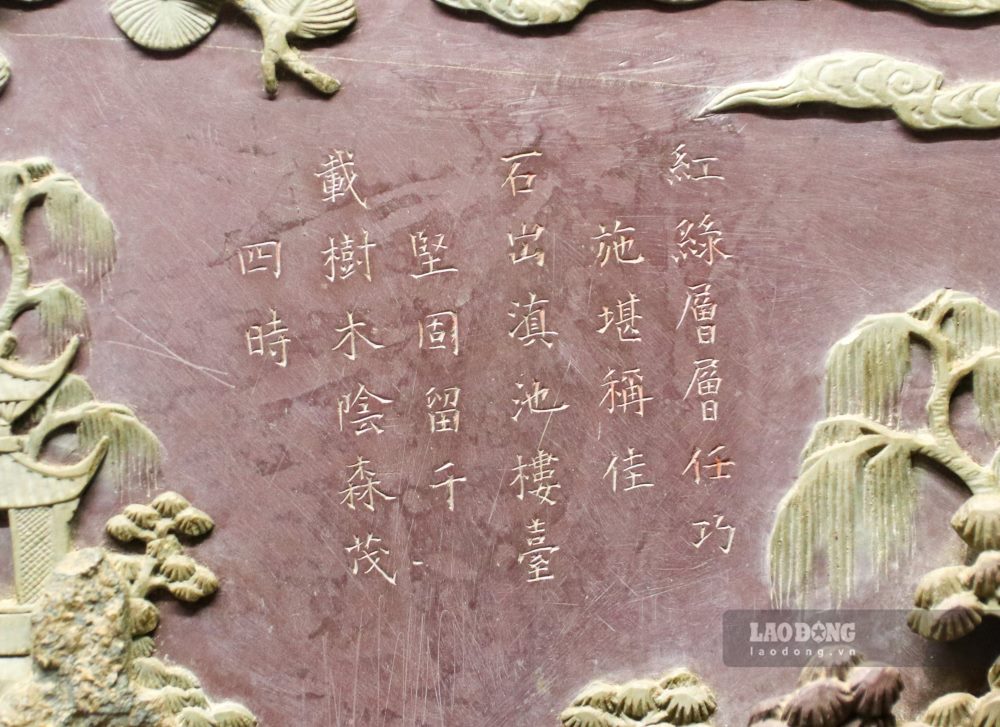 紅綠層層任巧
施堪稱佳
石出滇池樓臺
堅固留千
載樹木陰森茂
四時
LAO DONG
laodong.vn